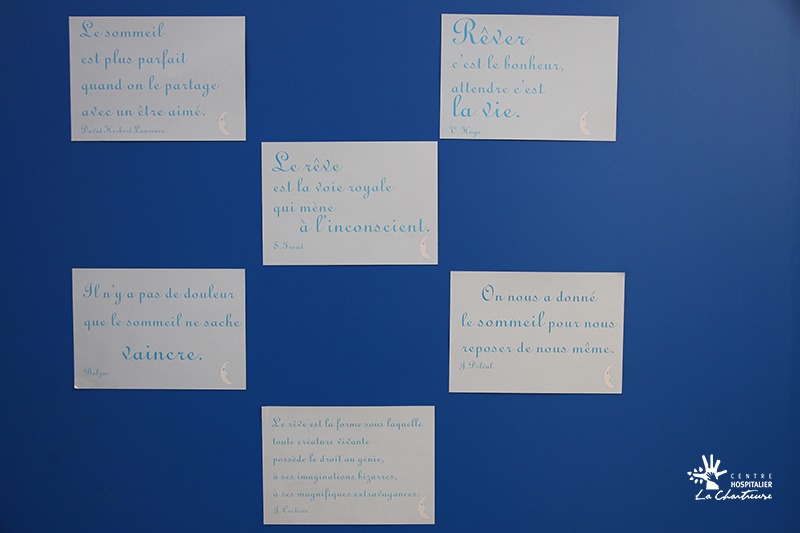 Le sommeil
est plus parfait
quand on le partage
avec un être aimé.
David Herbert Lawrence
Rêver
c'est le bonheur,
attendre c'est
la vie.
V. Hugo
Le rêve
est la voie royale
qui mène
à l'inconscient.
S. Freud
Il n'y a pas de douleur
que le sommeil ne sache
vaincre.
Balzac
On nous a donné
le sommeil pour nous
reposer de nous même.
J. Deléal
Le rêve est la forme sous laquelle
toute créature vivante
possède le droit au génie,
à ses imaginations bizarres,
à ses magnifiques extravagances.
J. Cocteau
CENTRE
HOSPITALIER
La Chartreuse